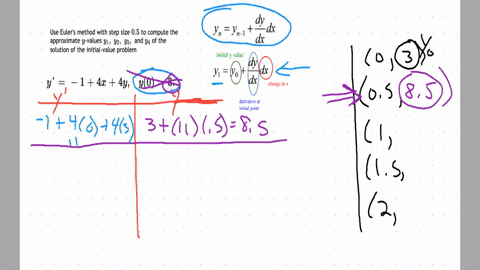 Use Euler's method with step size 0.5 to compute the
approximate y-values y₁, y₂, y₃, and y₄ of the
solution of the initial-value problem
y' = −1 + 4x + 4y, y(0)
yₙ = yₙ₋₁ + dy/dx dx
initial y value
y₁ = y₀ + dy/dx dx
change in x
derivative at
initial point
y'
-1+4(0)+4(3)
11
y
3+(11)(.5)=8.5
(0, 3) y₀
(0.5, 8.5)
(1,
(1.5,
(2,